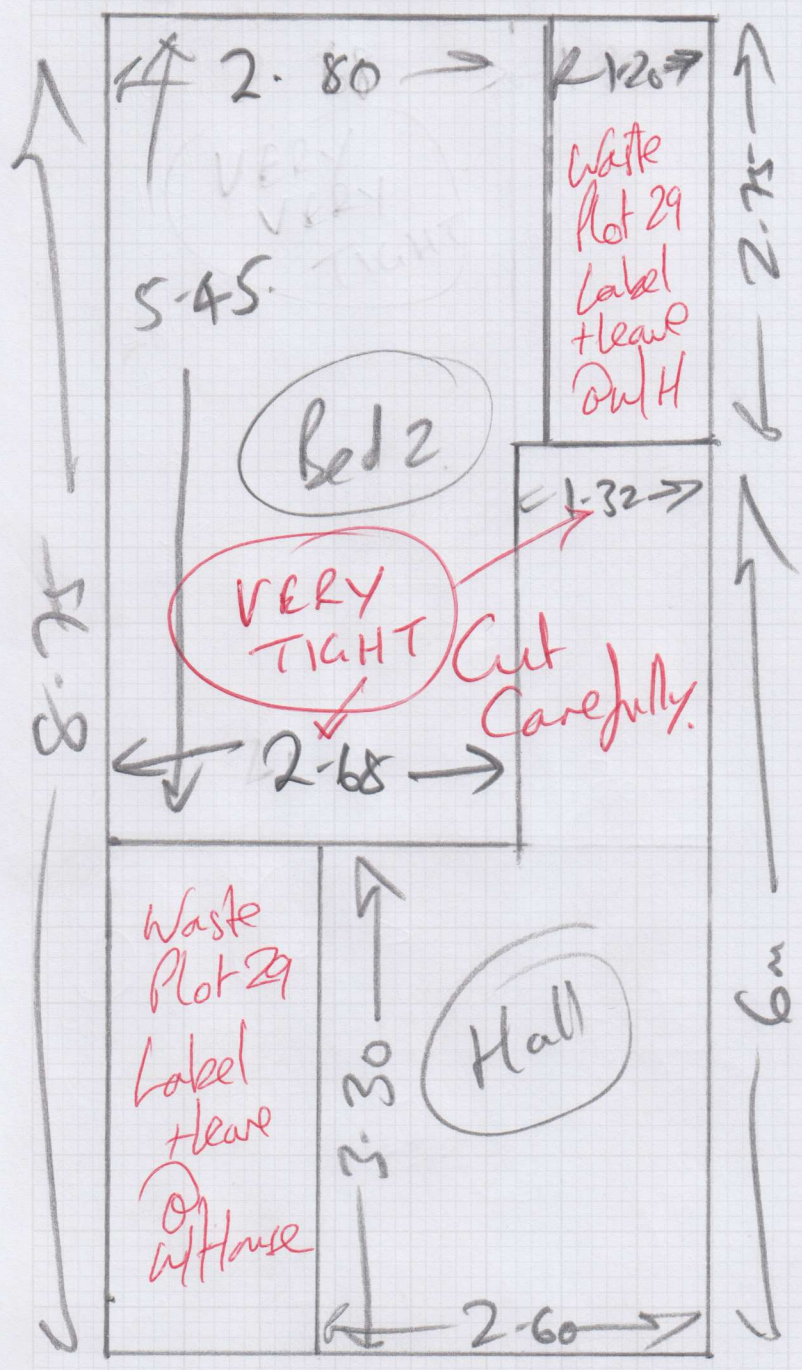 2.80
1.20
VERY
VERY
TIGHT
Waste
Plot 29
Label
+leave
@w/H
2.75
5.45
Bed 2
1.32
VERY
TIGHT
Cut
Carefully.
8.75
2.68
Waste
Plot 29
Label
+leave
@
w/House
3.30
Hall
6m
2.60